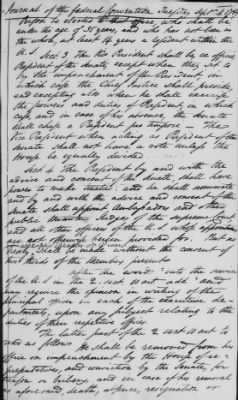 Journal of the federal Convention Tuesday Sept. 4 1787
Person be elected to that office, who shall be
under the age of 35 years, and who has not been in
the whole, at least 14 years a resident within the
U. S.
Sect. 3 The Vice President shall be ex officio
President of the Senate, except when they sit
to try the impeachment of the President in
which case the Chief Justice shall preside,
and excepting also when he shall exercise
the powers and duties of President, in which
case, and in case of his absence, the Senate
shall chuse a President pro tempore — The
Vice President when acting as President of the
Senate shall not have a vote unless the
House be equally divided
Sect 4 The President by and with the
advice and consent of the Senate, shall have
power to make treaties: and he shall nominate
and by and with the advice and consent of the
Senate shall appoint Ambassadors and other
public Ministers, Judges of the supreme Court
and all other officers of the U. S. whose appointments
are not otherwise herein provided for. But no
Treaty shall be made without the consent of
two thirds of the Members present
after the words "into the service
of the U S in the 2 sect 10 art add" and
may require the opinion in writing of the
principal officer in each of the executive de-
partments, upon any subject relating to the
duties of their respective offices
The latter part of the 2 sect 10 art to
read as follows
He shall be removed from his
office on impeachment by the House of re-
presentatives, and conviction by the Senate, for
treason or bribery and in case of his removal
as aforesaid, death, absence, resignation or